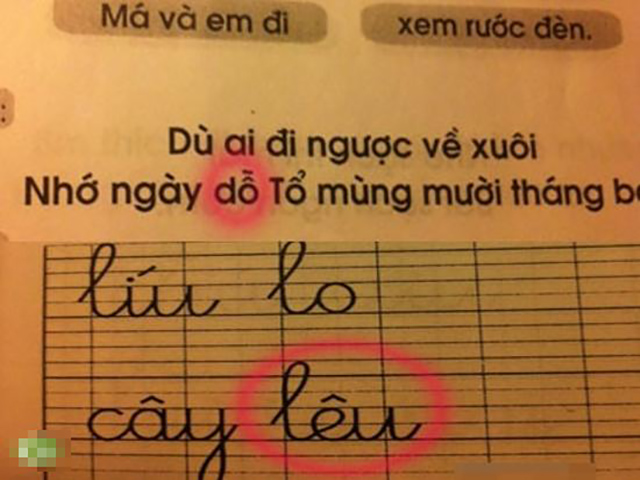 Má và em đi xem rước đèn.
Dù ai đi ngược về xuôi
Nhớ ngày dỗ Tổ mùng mười tháng
líu lo
cây lêu